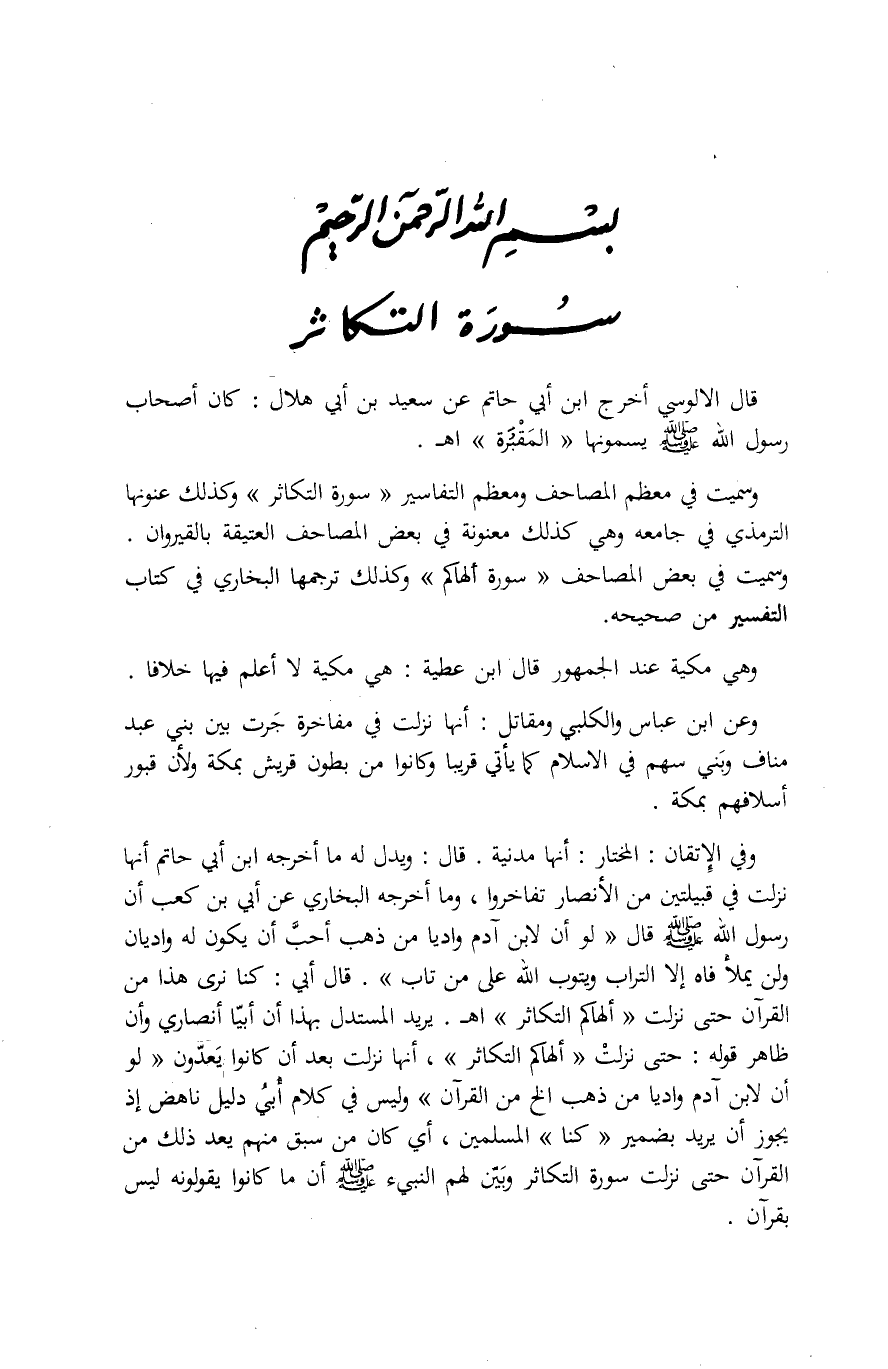 بسم الله الرحمن الرحيم
سُورَة التكاثر
قال الالوسي أخرج ابن أبي حاتم عن سعيد بن أبي هلال : كان أصحاب
رسول الله ﷺ يسمونها « المَقْبَرة » اهـ .
وسميت في معظم المصاحف ومعظم التفاسير « سورة التكاثر » وكذلك عنونها
الترمذي في جامعه وهي كذلك معنونة في بعض المصاحف العتيقة بالقيروان .
وسميت في بعض المصاحف « سورة ألهاكم » وكذلك ترجمها البخاري في كتاب
التفسير من صحيحه.
وهي مكية عند الجمهور قال ابن عطية : هي مكية لا أعلم فيها خلافا .
وعن ابن عباس والكلبي ومقاتل : أنها نزلت في مفاخرة جَرت بين بني عبد
مناف وبَني سهم في الاسلام كما يأتي قريبا وكانوا من بطون قريش بمكة ولأن قبور
أسلافهم بمكة .
وفي الإِتقان : المختار : أنها مدنية . قال : ويدل له ما أخرجه ابن أبي حاتم أنها
نزلت في قبيلتين من الأنصار تفاخروا ، وما أخرجه البخاري عن أبي بن كعب أن
رسول الله ﷺ قال « لو أن لابن آدم واديا من ذهب أحبَّ أن يكون له واديان
ولن يملأ فاه إلا التراب ويتوب الله على من تاب » . قال أبي : كنا نرى هذا من
القرآن حتى نزلت « ألهاكم التكاثر » اهـ . يريد المستدل بهذا أن أبيّا أنصاري وأن
ظاهر قوله : حتى نزلتْ « ألهاكم التكاثر » ، أنها نزلت بعد أن كانوا يَعدّون « لو
أن لابن آدم واديا من ذهب الخ من القرآن » وليس في كلام أُبيُ دليل ناهض إذ
يجوز أن يريد بضمير « كنا » المسلمين ، أي كان من سبق منهم يعد ذلك من
القرآن حتى نزلت سورة التكاثر وبَيّن لهم النبيء ﷺ أن ما كانوا يقولونه ليس
بقرآن .